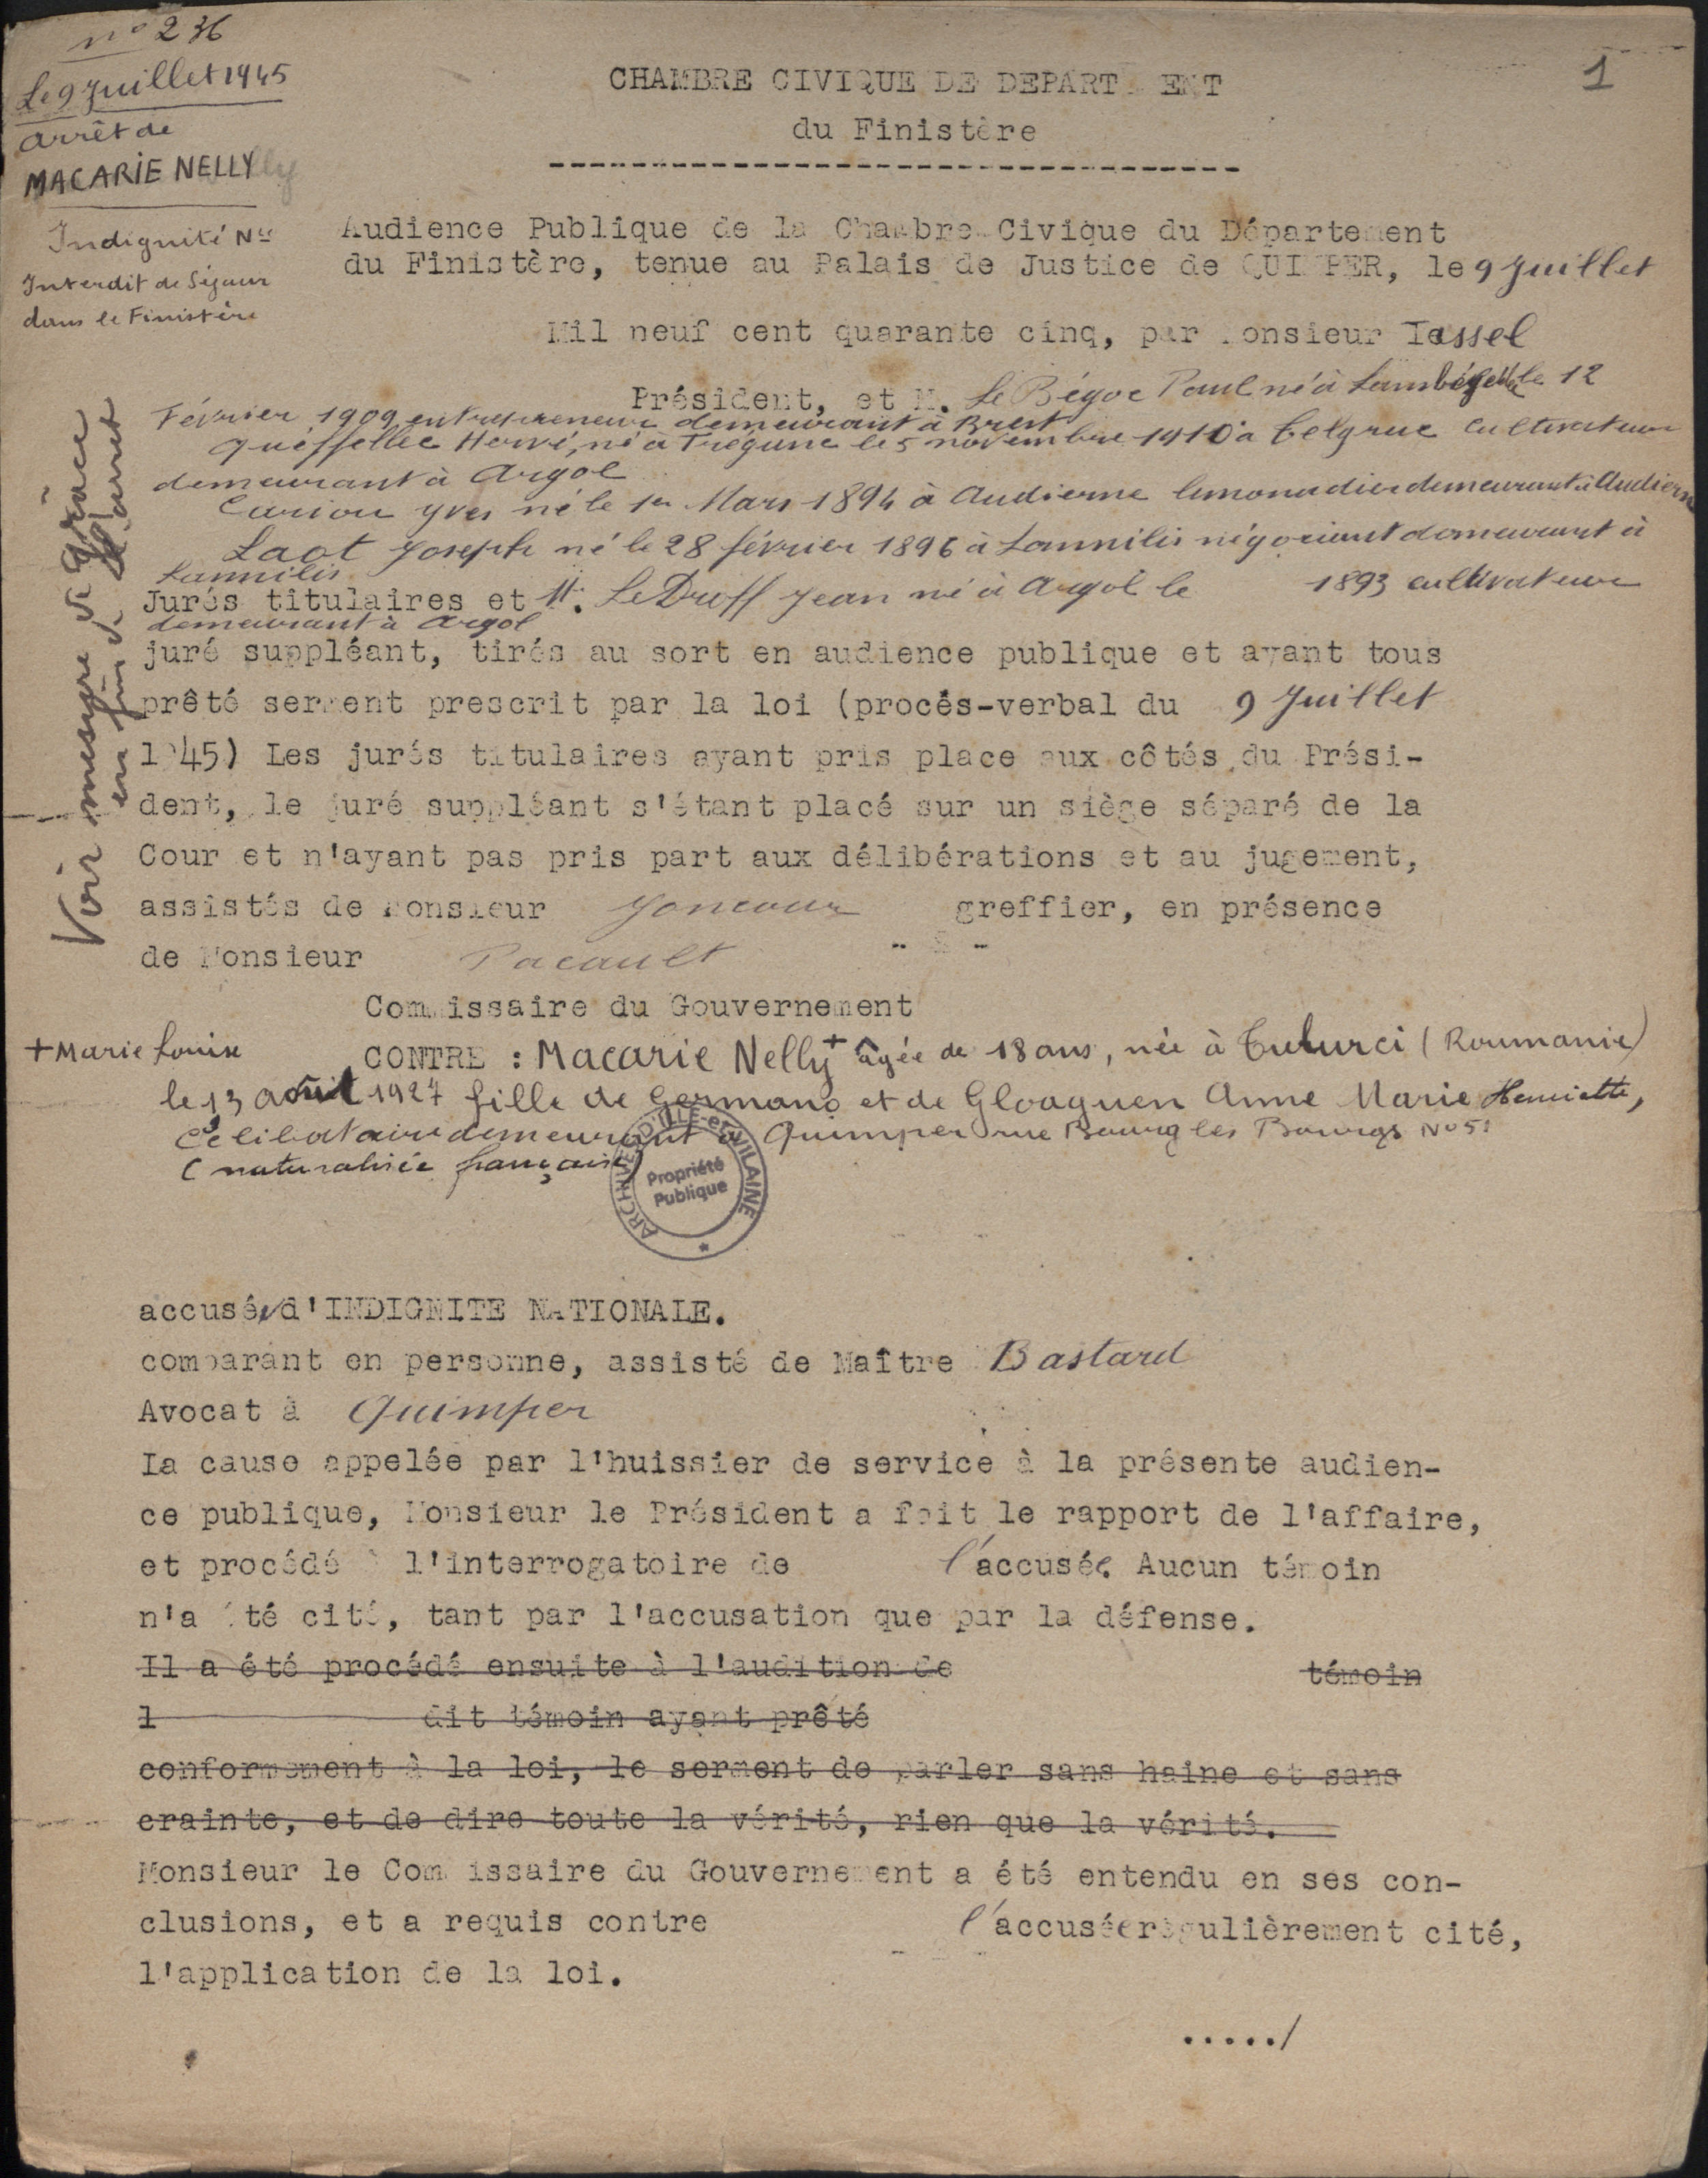 n° 236
Le 9 Juillet 1945
arrêt de
MACARIE NELLY
Indignité Nle
Interdit de Séjour
dans le Finistère
1
CHAMBRE CIVIQUE DE DEPARTEMENT
du Finistère
Audience Publique de la Chambre Civique du Département
du Finistère, tenue au Palais de Justice de QUIMPER, le 9 Juillet
Mil neuf cent quarante cinq, par Monsieur Tassel
Président, et M. Le Bégoc Paul né à Lambézellec le 12
Février 1909 entrepreneur demeurant à Brest
Quéffellec Hervé, né à Trégunc le 5 novembre 1910 à Telgruc Cultivateur
demeurant à Argol
Cariou Yves né le 1er Mars 1894 à Audierne limonadier demeurant à Audierne
Laot Joseph né le 28 février 1896 à Lannilis négociant demeurant à
Lannilis
Jurés titulaires et M. Le Droff Jean né à Argol le 1893 cultivateur
demeurant à Argol
juré suppléant, tirés au sort en audience publique et ayant tous
prêté serment prescrit par la loi (procès-verbal du 9 Juillet
1945) Les jurés titulaires ayant pris place aux côtés du Prési-
dent, le juré suppléant s'étant placé sur un siège séparé de la
Cour et n'ayant pas pris part aux délibérations et au jugement,
assistés de Monsieur Joncour greffier, en présence
de Monsieur Pacault
Commissaire du Gouvernement
Voir mesure de grâce
en fin de l'arrêt
+ Marie Louise
CONTRE : Macarie Nelly + âgée de 18 ans, née à Tulurci (Roumanie)
le 13 août 1927 fille de Germano et de Gloaguen Anne Marie Henriette,
Célibataire demeurant à Quimper rue Bourg les Bourgs N° 51
(naturalisée française)
ARCHIVES D'ILLE-ET-VILAINE
Propriété
Publique
accusée d'INDIGNITE NATIONALE.
comparant en personne, assisté de Maître Bastard
Avocat à Quimper
La cause appelée par l'huissier de service à la présente audien-
ce publique, Monsieur le Président a fait le rapport de l'affaire,
et procédé à l'interrogatoire de l'accusée. Aucun témoin
n'a été cité, tant par l'accusation que par la défense.
Il a été procédé ensuite à l'audition de témoin
l dit témoin ayant prêté
conformément à la loi, le serment de parler sans haine et sans
crainte, et de dire toute la vérité, rien que la vérité.
Monsieur le Commissaire du Gouvernement a été entendu en ses con-
clusions, et a requis contre l'accusée régulièrement cité,
l'application de la loi.
...../